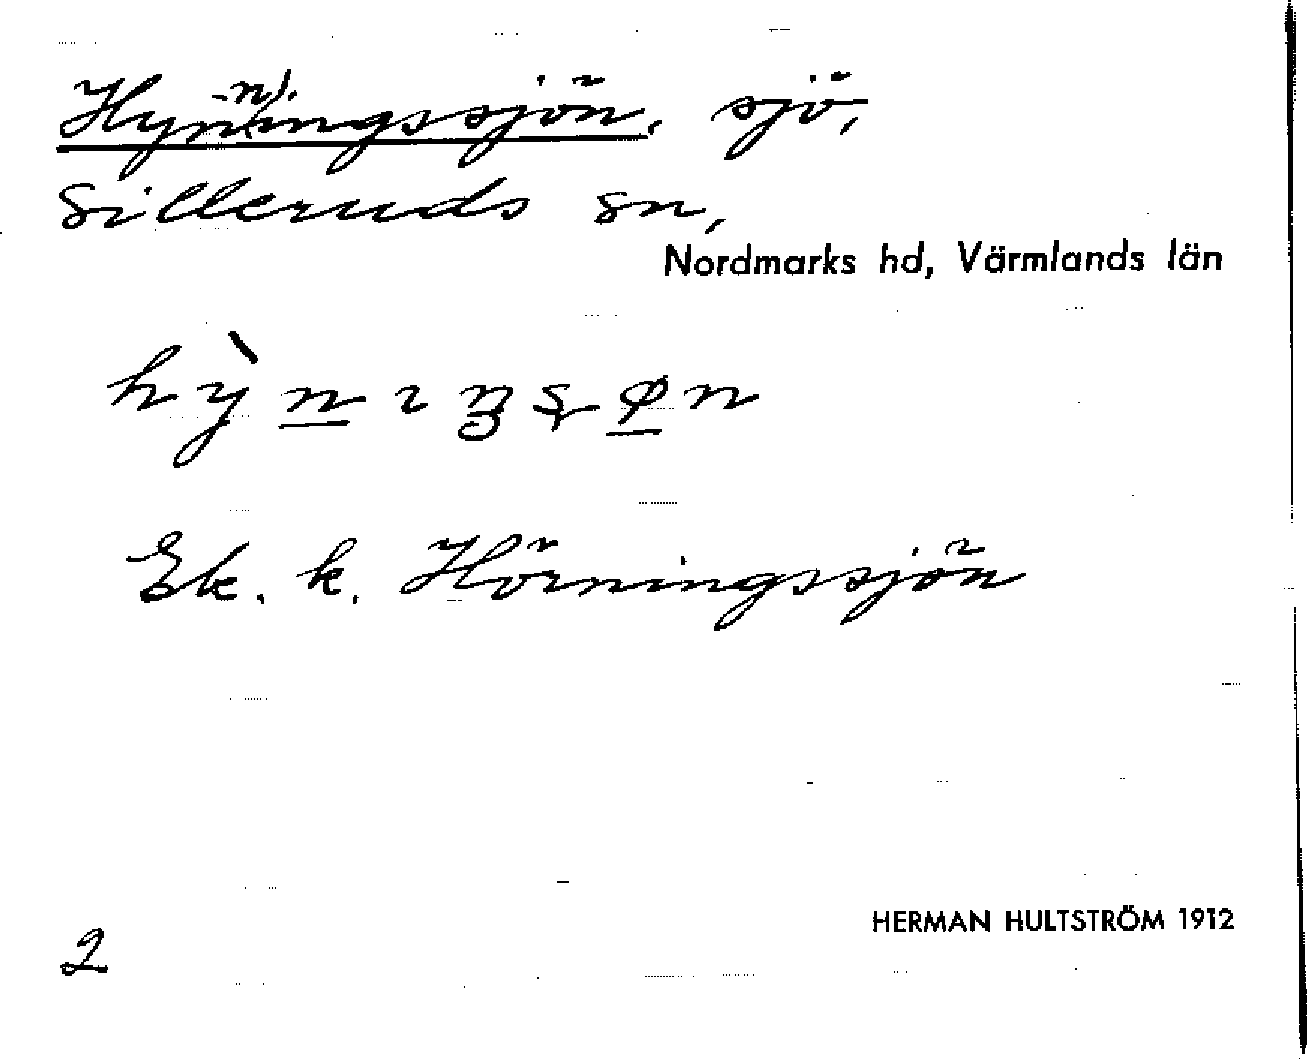 Hyn(-n)ingssjön, sjö,
Silleruds sn,
Nordmarks hd, Värmlands län
hỳnıŋsøn
Ek. k. Hörningssjön
HERMAN HULTSTRÖM 1912
2